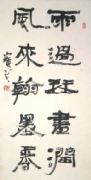 雨過琴畫潤
風來翰墨香